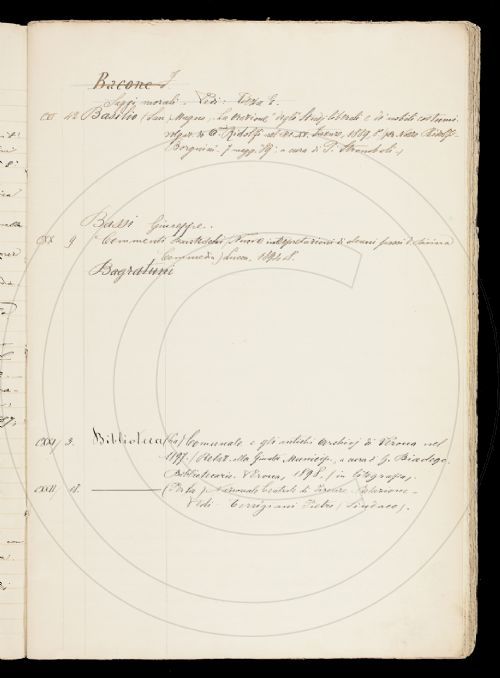 Bacone F
Saggi morali. Vedi:
CXI 42 Basilio (San) Magno. La orazione degli Studj liberali e de' nobili costumi
volgar. da Ridolfi nel Firenze, 1889, 8° per Nozze Ridolfi
Borgnini. 7 magg. 89: a cura di P. Stromboli.
Bassi Giuseppe.
CXX 9 Commenti Danteschi. Nuove interpretazioni di alcuni passi d. Divina
Commedia) Lucca. 1894. 8.
Bagratuni
CXXI 3. Biblioteca (La) Comunale e gli antichi archivj di Verona nel
(Relaz. alla Giunta Municip. a cura d. G. Biadego.
Bibliotecario. Verona, 1898. (in litografia,
CXXII 18. (Detta) Nazionale Centrale di Firenze. Relazione.
Vedi Torrigiani Pietro (Sindaco).